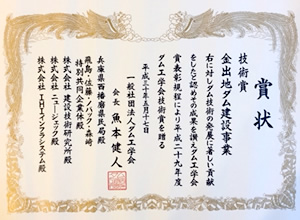 賞状
技術賞
金出地ダム建設事業
右に対しダム技術の発展に著しい貢献
をしたと認めその成果を讃えダム工学会
賞表彰規程により平成二十九年度
ダム工学会技術賞を贈る
平成三十年五月十七日
一般社団法人ダム工学会
会長 魚本健人
兵庫県西播磨県民局殿
飛島・佐藤・ノバック・森崎
特別共同企業体殿
株式会社 建設技術研究所殿
株式会社 ニュージェック殿
株式会社 IHIインフラシステム殿